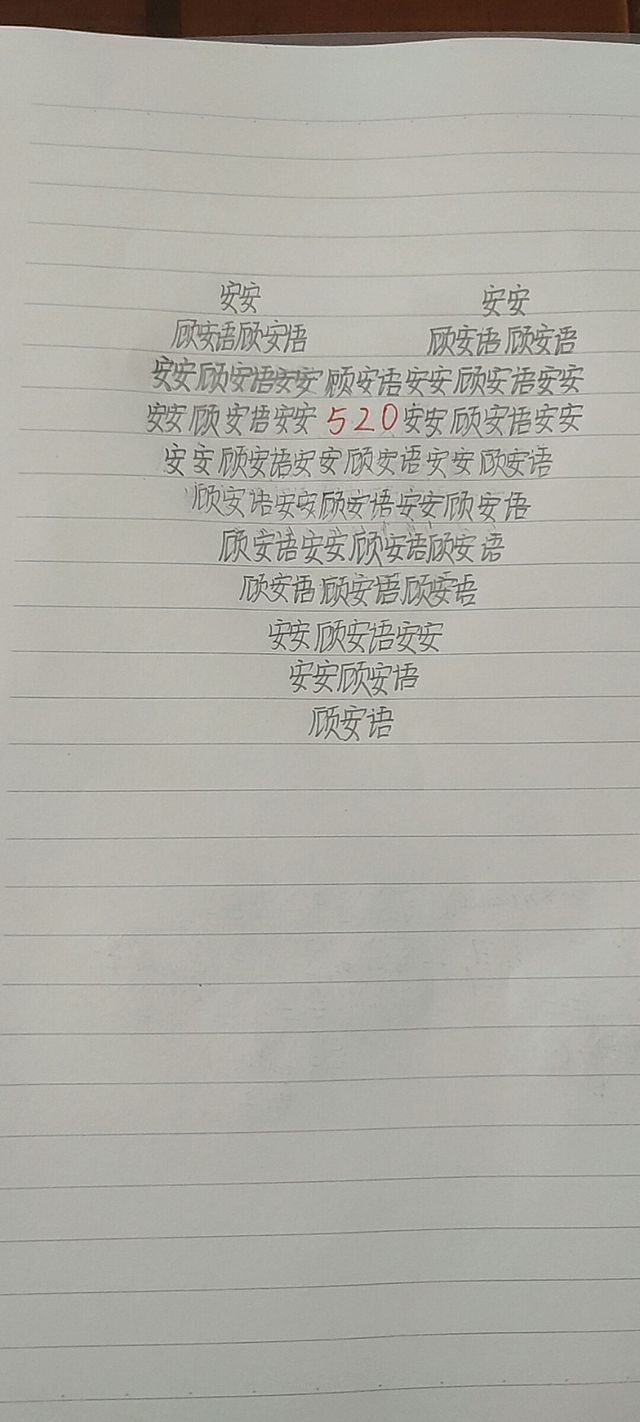 安安 安安
顾安语顾安语 顾安语顾安语
安安顾安语安安顾安语安安顾安语安安
安安顾安语安安520安安顾安语安安
安安顾安语安安顾安语安安顾安语
顾安语安安顾安语安安顾安语
顾安语安安顾安语顾安语
顾安语顾安语顾安语
安安顾安语安安
安安顾安语
顾安语